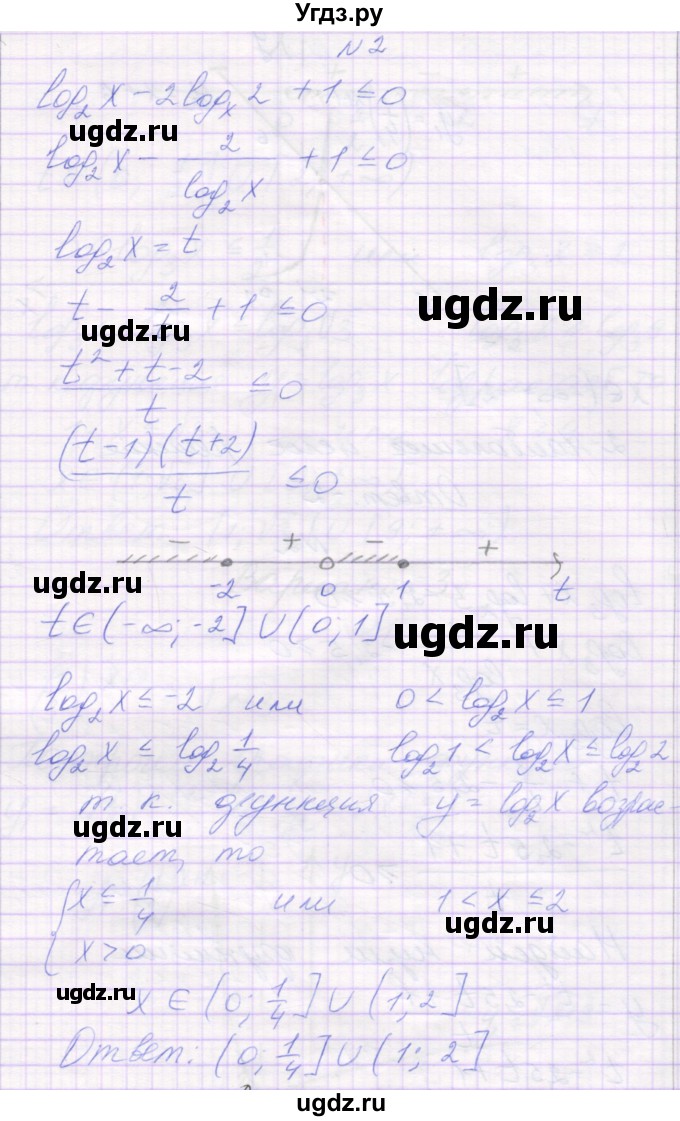 Угдз.ру
N 2
log₂ x - 2 logₓ 2 + 1 ≤ 0
ugdz.ru
log₂ x - 2/(log₂ x) + 1 ≤ 0
log₂ x = t
ugdz.ru
t - 2/t + 1 ≤ 0
ugdz.ru
(t² + t - 2)/t ≤ 0
((t-1)(t+2))/t ≤ 0
- + - +
ugdz.ru
-2 0 1 t
t ∈ (-∞; -2] ∪ (0; 1]
ugdz.ru
log₂ x ≤ -2 или 0 < log₂ x ≤ 1
log₂ x ≤ log₂ 1/4 log₂ 1 < log₂ x ≤ log₂ 2
т. к. функция y = log₂ x возрас-
ugdz.ru
тает, то
{ x ≤ 1/4 или 1 < x ≤ 2
ugdz.ru
x > 0
ugdz.ru
x ∈ (0; 1/4] ∪ (1; 2]
Ответ: (0; 1/4] ∪ (1; 2]
ugdz.ru